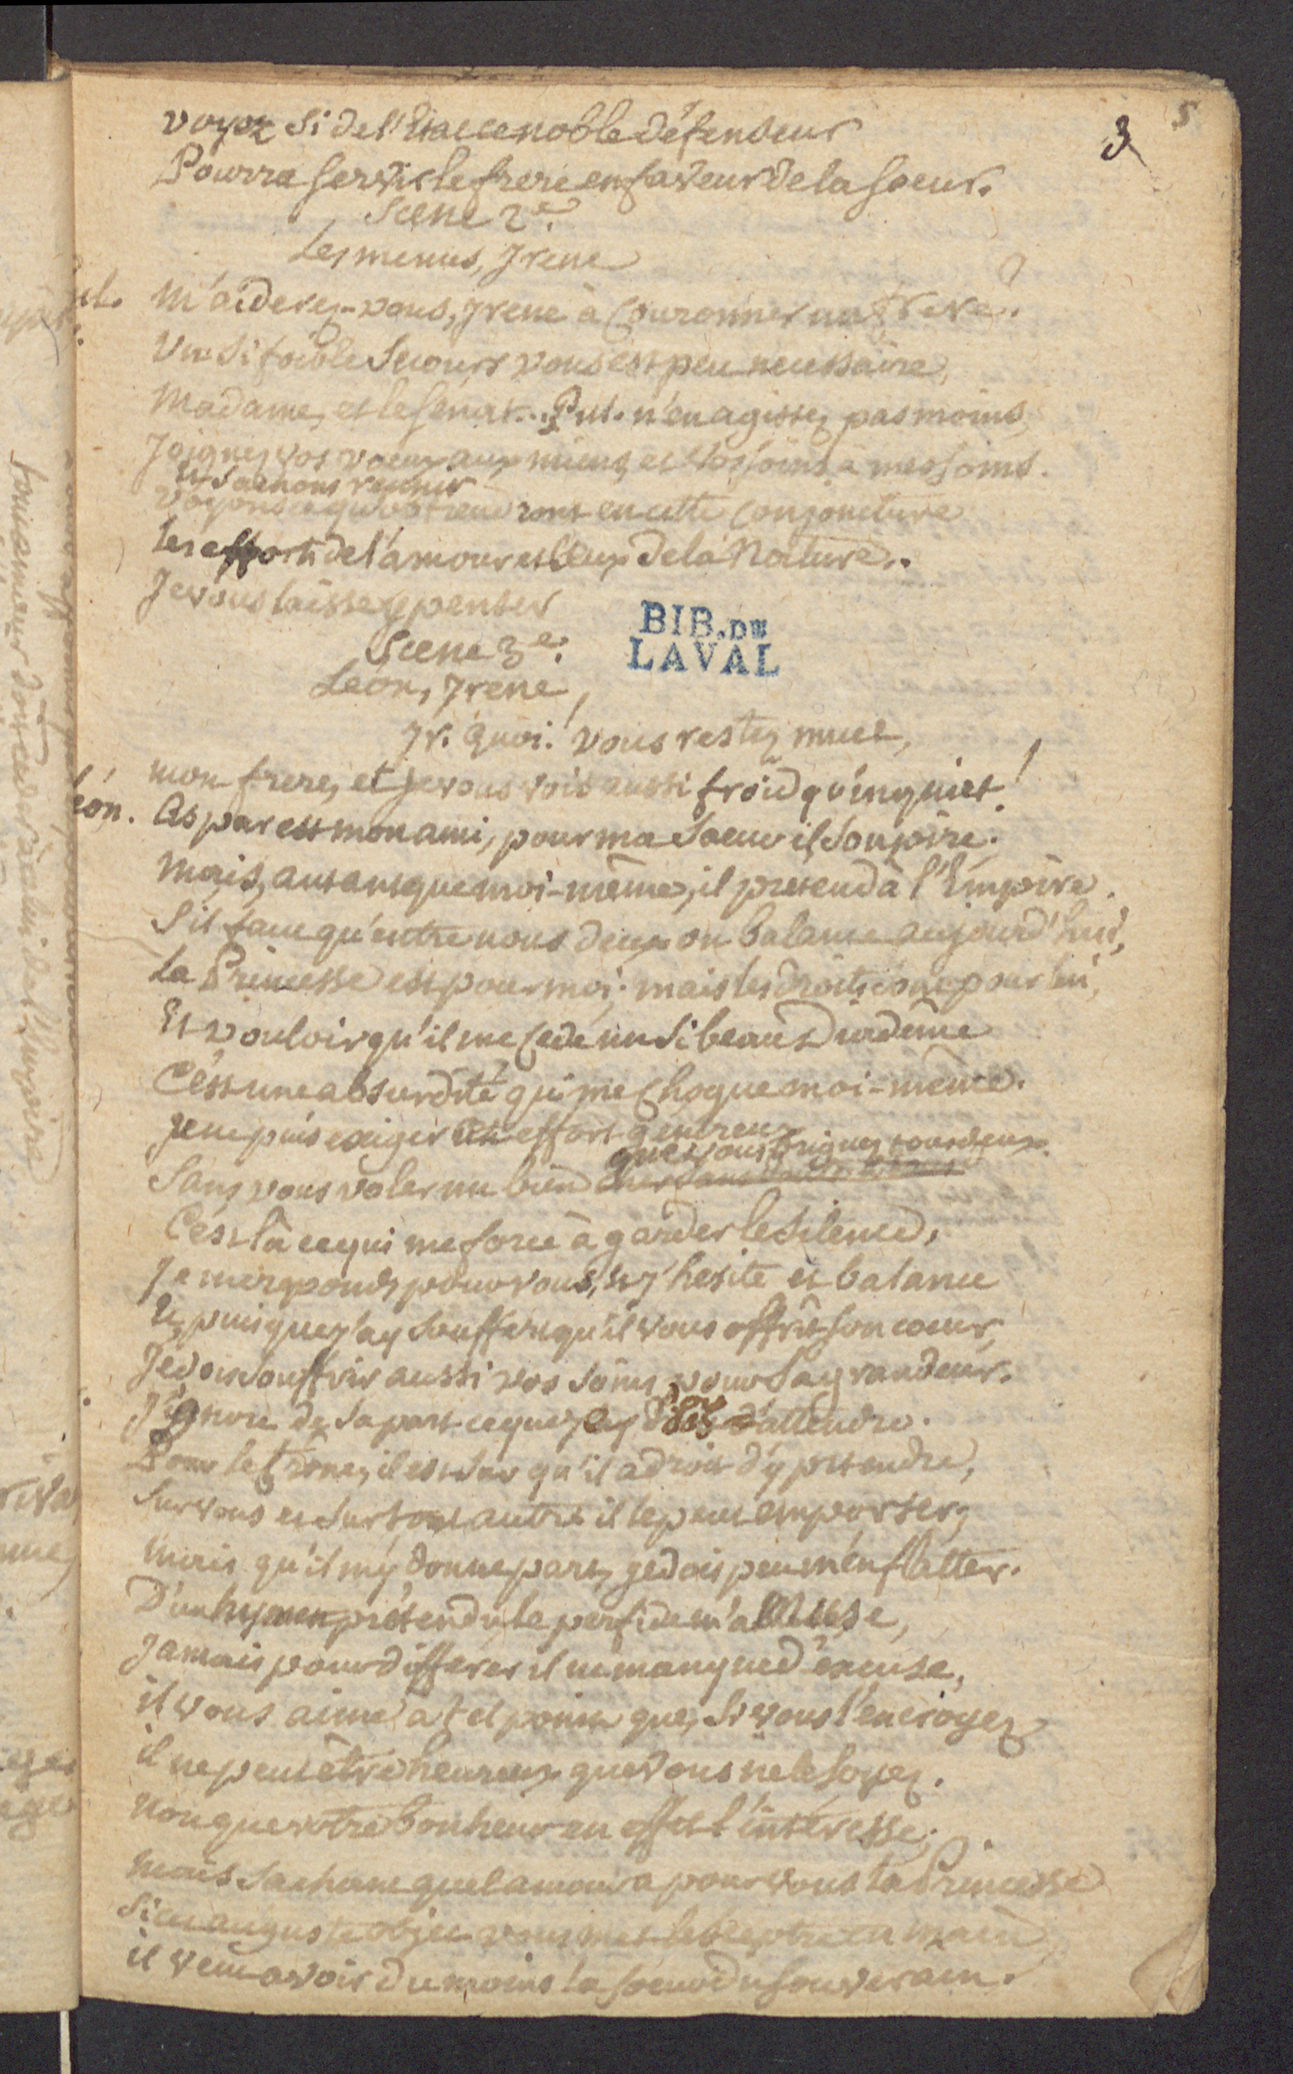 3 5
voyez si de l'Etat ce noble défenseur
Pourra servir le frere en faveur de la soeur.
Scene 2e.
Les memes, Irene
ul. M'aiderez-vous, Irene à Couronner un frere?
Un si foible secours vous est peu necessaire,
Madame, et le senat... Pul. n'en agissez pas moins,
Joignez vos voeux aux miens, et vos soins a mes soins.
Et sachons reunir
Voyons ce qu'obtiendront en cette Conjoncture
Les efforts de l'amour et ceux de la Nature..
Je vous laisse y penser
BIB. DE
LAVAL
Scene 3e.
Léon, Irene,
Ir. Quoi! vous restez muet,
mon frere, et je vous vois aussi froid qu'inquiet!
Léon. Aspar est mon ami, pour ma soeur il soupire;
Mais, autant que moi-même, il pretend à l'Empire.
S'il faut qu'entre nous deux on balance aujourd'hui,
La Princesse est pour moi; mais les droits sont pour lui,
Et vouloir qu'il me cede un si beau Diadême
C'est une absurdité qui me choque moi-même.
Je ne puis exiger cet effort genereux
que vous briguez tous deux.
Sans vous voler un bien
C'est là ce qui me force à garder le silence,
Je m'y ponds pour vous, et j'hesite et balance
Et, puisque j'ay souffert qu'il vous offrît son coeur,
Je dois souffrir aussi vos soins pour sa grandeur.
J'ignore de sa part ce que je dois d'attendre.
Pour le trône, il est sur qu'il a droit d'y pretendre,
Sur vous et sur tout autre il le peut emporter;
Mais qu'il m'y donne part, je dois peu m'en flatter.
D'un hymen prétendu le perfide m'abuse,
Jamais pour differer il ne manque d'excuse,
il vous aime à tel point que, si vous l'en croyez
il ne peut être heureux que vous ne le soyez.
Non que votre bonheur en effet l'interesse;
Mais sachant quel amour a pour vous la Princesse
Si cet auguste objet vous met le sceptre en main
il veut avoir du moins la soeur du souverain.